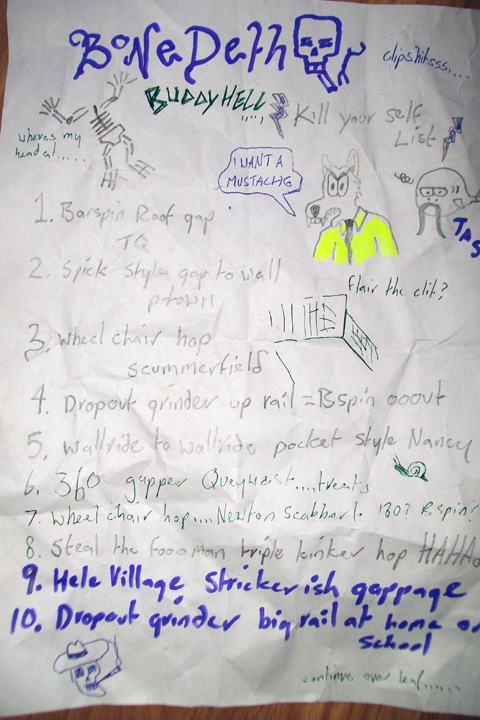 BoNe Deth
clipshitsss....
BUDDY HELL .....
Kill your self
List
wheres my
head at......
I WANT A
MUSTACHE
TAS
1. Barspin Roof gap
TQ
2. Spick style gap to wall
ptown
flair the clit?
3. wheel chair hop
scummerfield
4. Dropout grinder up rail = Bspin ooout
5. wallride to wallride pocket style Nancy
6. 360 gapper Queywest....treats
7. wheel chair hop....Newton Scabbert. 180? Bspin?
8. Steal the foooman triple kinker hop HAHAo
9. Hele Village Strickerish gappage
10. Dropout grinder big rail at home or
school
continue over leaf......